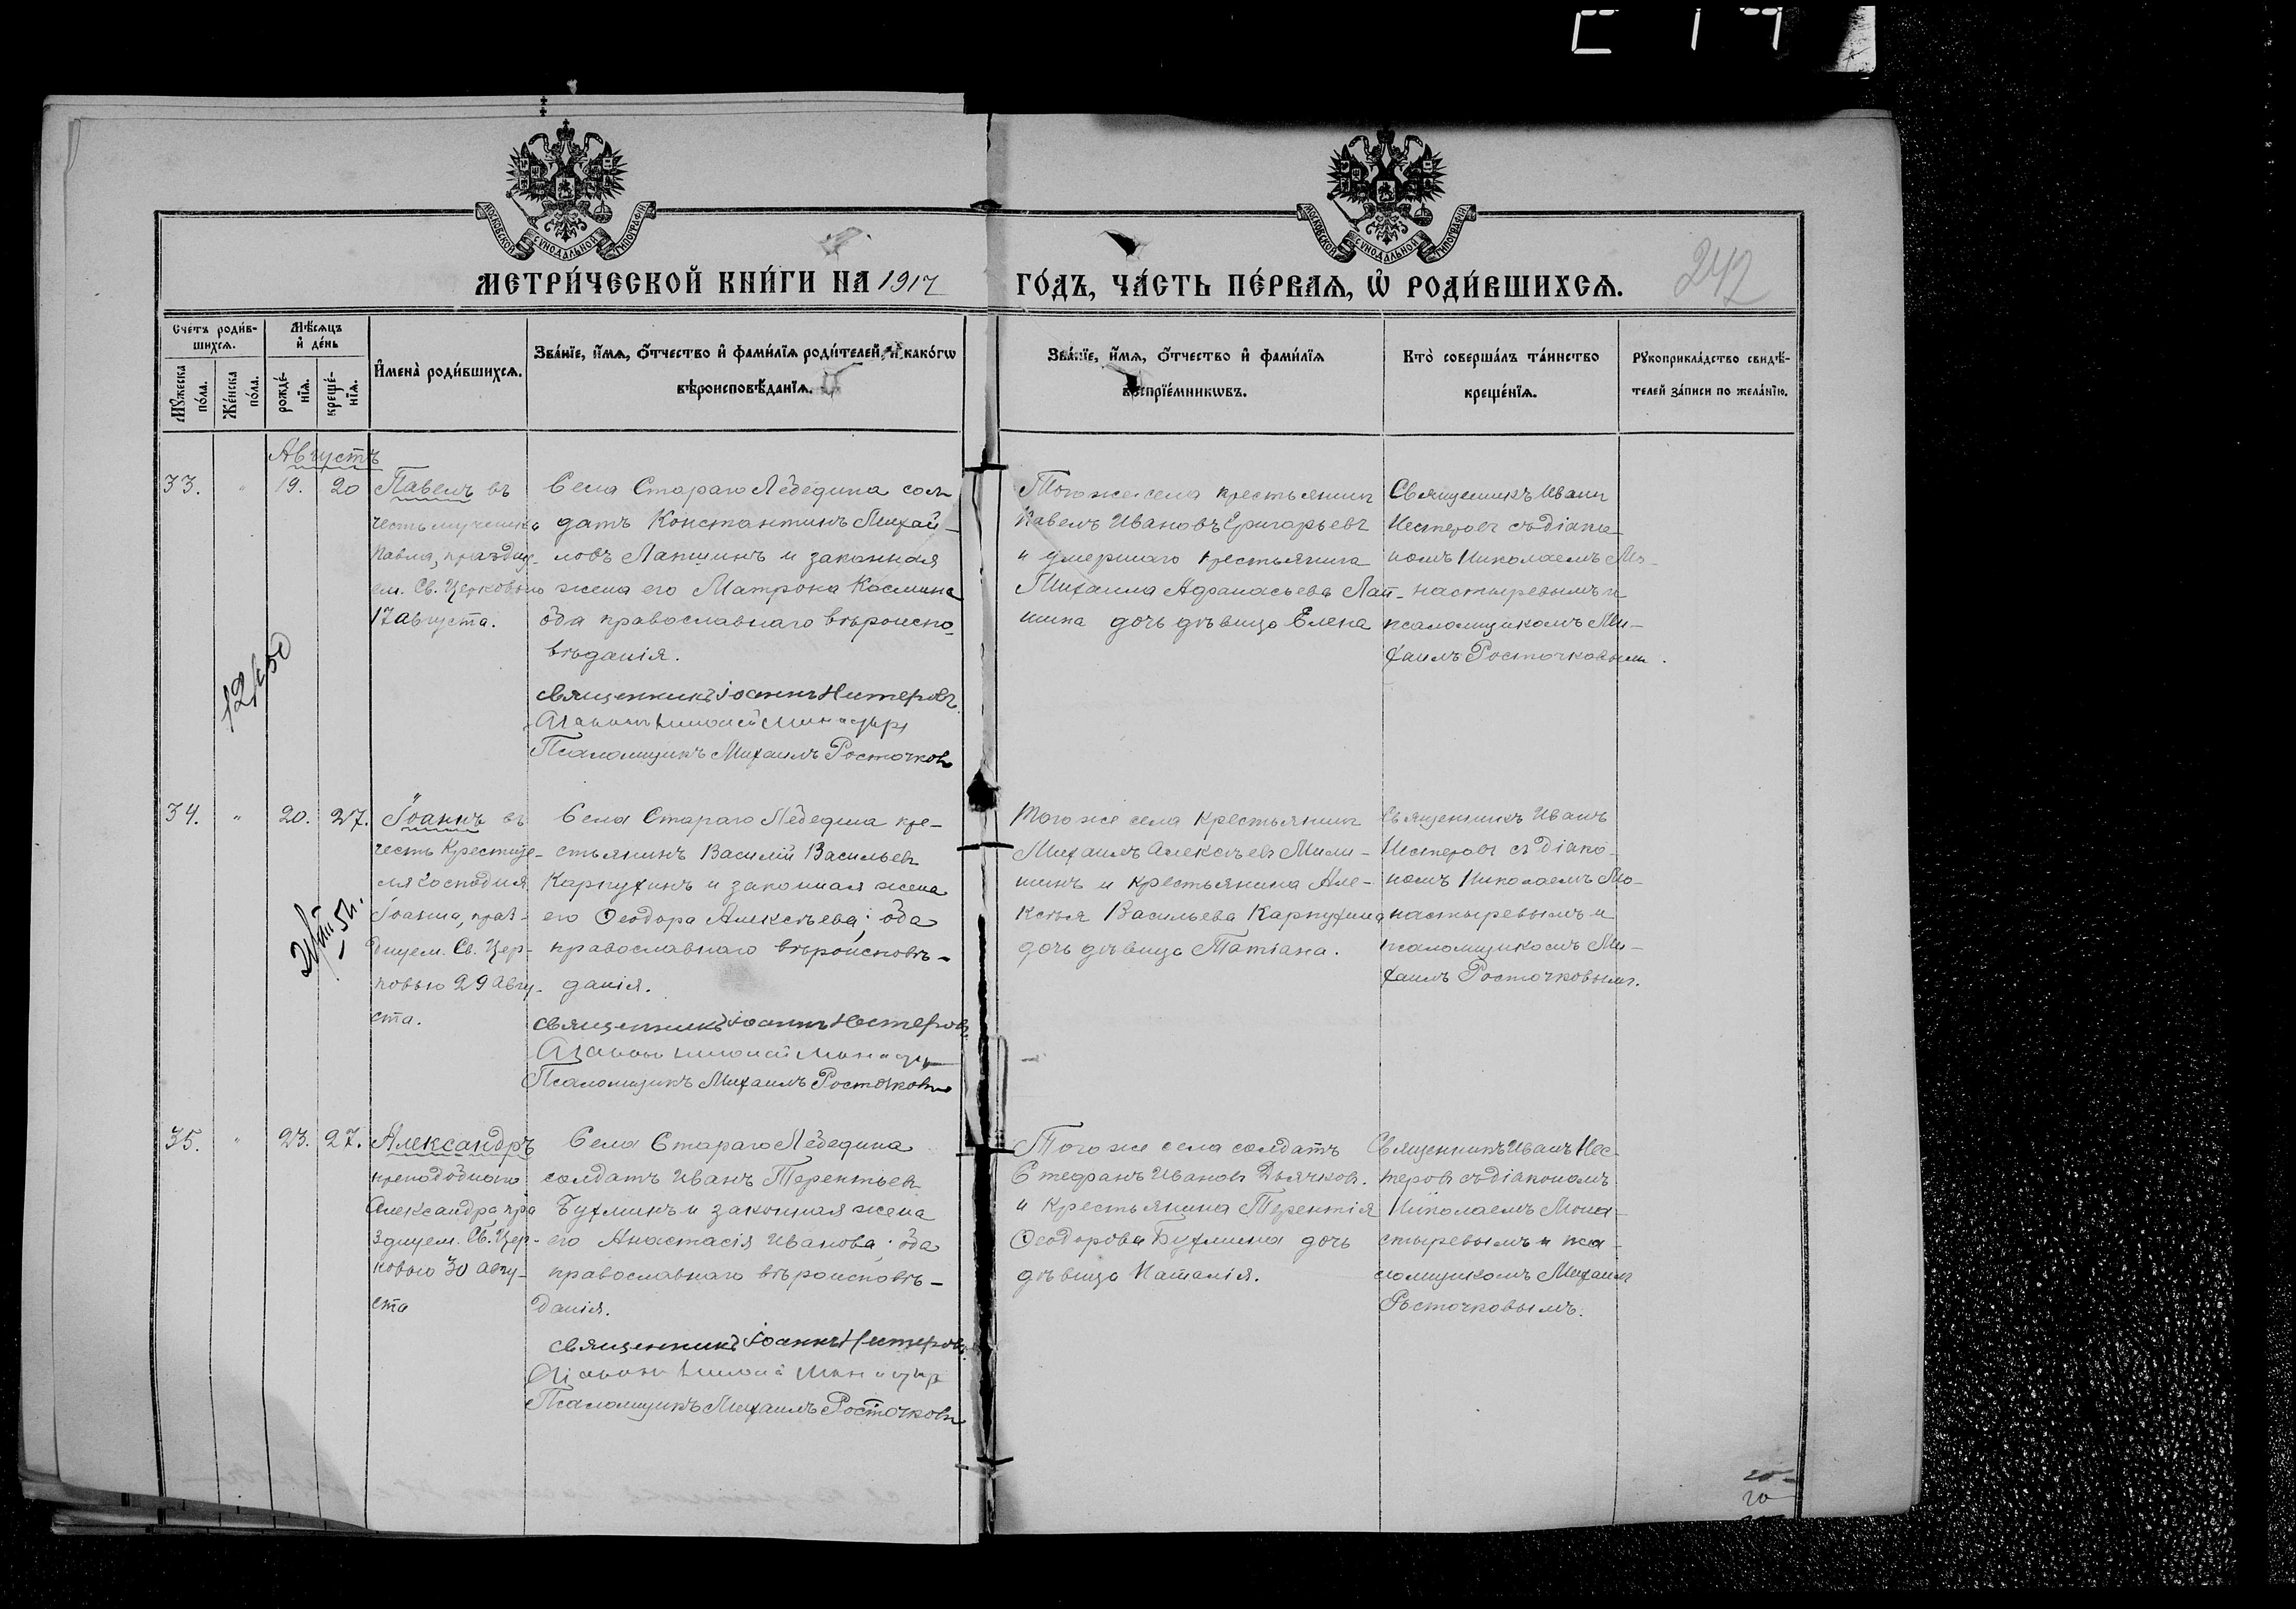 МОСКОВСКОЙ СУНОДАЛЬНОЙ ТИПОГРАФІИ
МОСКОВСКОЙ СУНОДАЛЬНОЙ ТИПОГРАФІИ
МЕТРИ́ЧЕСКОЙ КНИ́ГИ НА 1917
ГО́ДЪ, ЧА́СТЬ ПЕ́РВАѦ, Ѡ҆ РОДИ́ВШИХСѦ.
242
Сче́тъ роди́в-
шихсѧ.
Мѣ́сѧцъ
и҆ де́нь
Мꙋ́жеска
по́ла.
Же́нска
по́ла.
рожде́-
нїѧ.
креще́-
нїѧ.
И҆мена̀ роди́вшихсѧ.
Зва́нїе, и҆́мѧ, ѻ҆́тчество и҆ фами́лїѧ роди́телей, и҆ како́гѡ
вѣроисповѣ́данїѧ.
Зва́нїе, и҆́мѧ, ѻ҆́тчество и҆ фами́лїѧ
воспрїе́мникѡвъ.
Кто̀ соверша́лъ та́инство
креще́нїѧ.
Рꙋкоприкла́дство свидѣ́-
телей за́писи по жела́нїю.
Августъ
33. " 19. 20
Павелъ въ
честь мученика
Павла, празднуе-
ем. Св. Церковью
17 августа.
Села Стараго Лебедина сол-
датъ Константинъ Михай-
ловъ Лапшинъ и законная
жена его Матрона Космина
оба православнаго вѣроиспо-
вѣданія.
священникъ Іоаннъ Нестеровъ.
Діаконъ Николай Монастыр
Псаломщикъ Михаилъ Росточковъ
Того же села крестьянинъ
Павелъ Ивановъ Григорьевъ
и умершаго крестьянина
Михаила Афанасьева Лап-
шина дочь дѣвица Елена
Священникъ Иванъ
Нестеровъ съ діако-
номъ Николаемъ Мо-
настыревымъ и
псаломщикомъ Ми-
хаилъ Росточковымъ.
34. " 20. 27.
Іоаннъ въ
честь Крестите-
ля Господня
Іоанна, праз-
днуем. Св. Цер-
ковью 29 авгу-
ста.
Села Стараго Лебедина кре-
стьянинъ Василій Васильевъ
Карпухинъ и законная жена
его Ѳеодора Алексѣева; оба
православнаго вѣроисповѣ-
данія.
священникъ Іоаннъ Нестеровъ.
Діаконъ Николай Монастыр
Псаломщикъ Михаилъ Росточковъ
Того же села крестьянинъ
Михаилъ Алексѣевъ Мили-
шинъ и крестьянина Але-
ксѣя Васильева Карпухина
дочь дѣвица Татіана.
Священникъ Иванъ
Нестеровъ съ діако-
номъ Николаемъ Мо-
настыревымъ и
псаломщикомъ Ми-
хаилъ Росточковымъ.
35. " 23. 27.
Александръ
преподобнаго
Александра пра
зднуем. Св. Цер-
ковью 30 авгу-
ста
Села Стараго Лебедина
солдатъ Иванъ Терентьевъ
Бухминъ и законная жена
его Анастасія Иванова; оба
православнаго вѣроисповѣ-
данія.
священникъ Іоаннъ Нестеровъ.
Діаконъ Николай Монастыр
Псаломщикъ Михаилъ Росточковъ
Того же села солдатъ
Стефанъ Ивановъ Дьячковъ.
и крестьянина Терентія
Ѳеодорова Бухмина дочь
дѣвица Наталія.
Священникъ Иванъ Нес-
теровъ съ діакономъ
Николаемъ Мона-
стыревымъ и пса-
ломщикомъ Михаилъ
Росточковымъ.
20
20